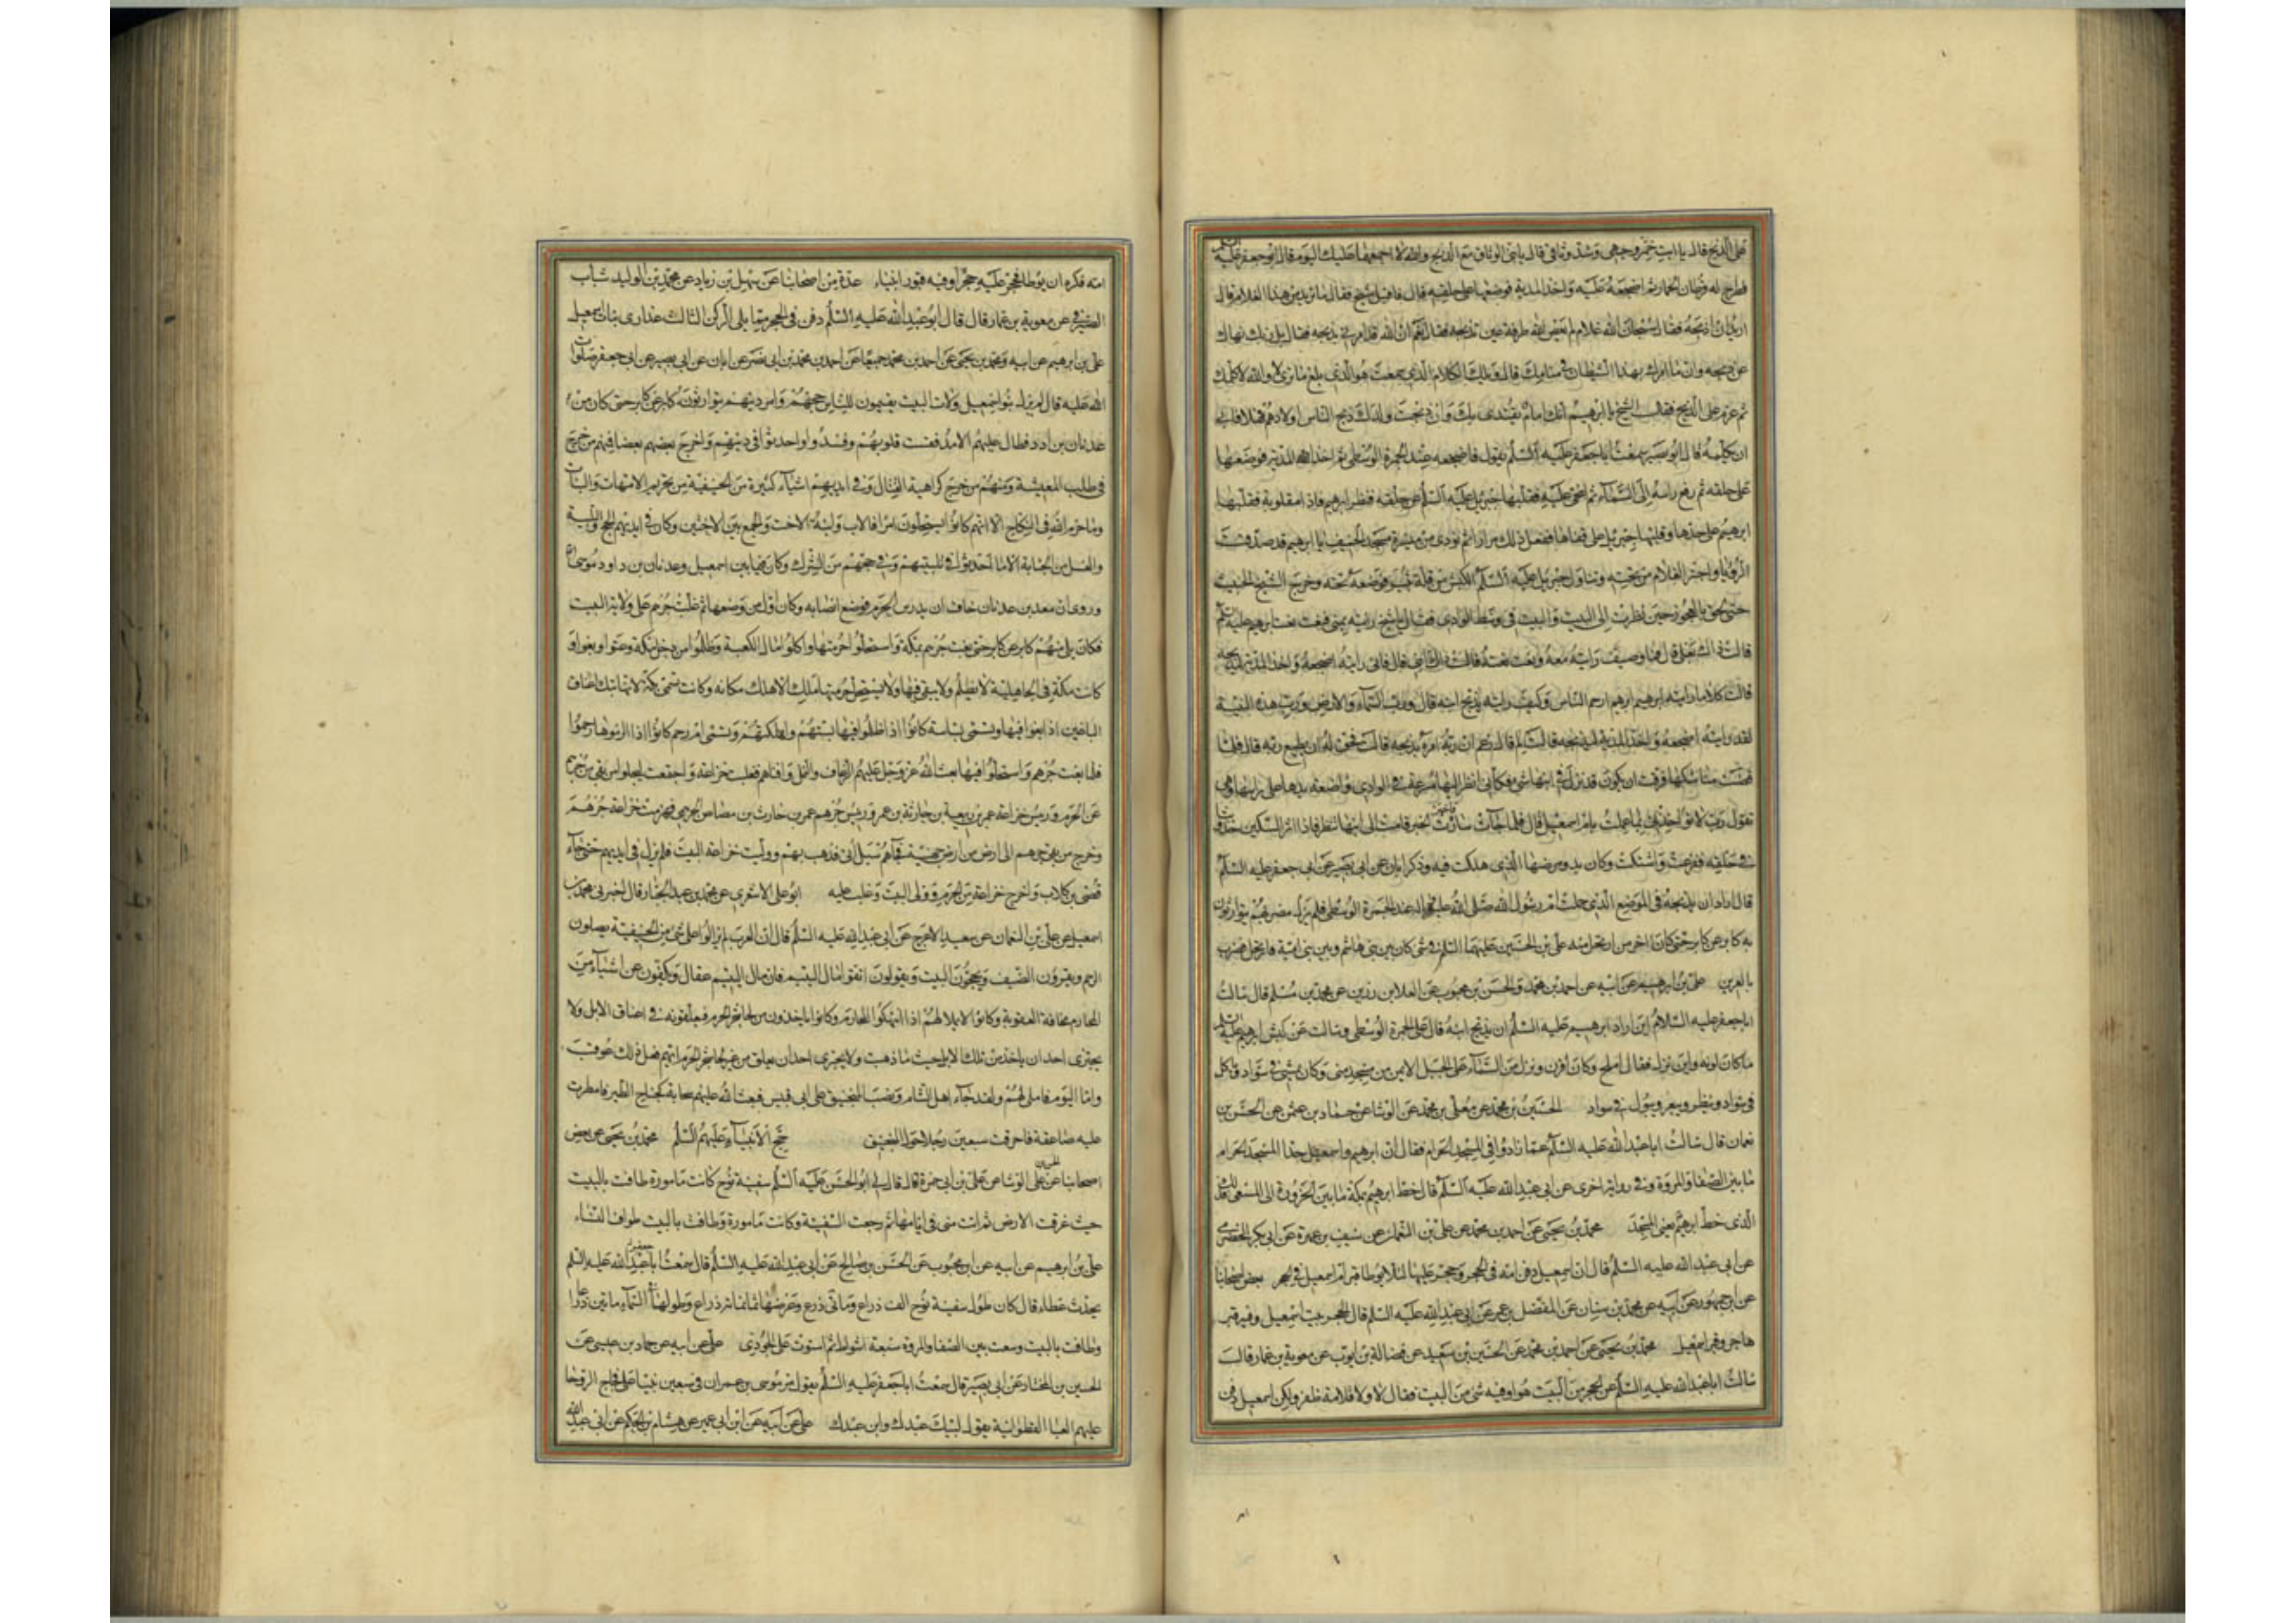 على الذبح قال يا ابت خمر وجهى وشد وثاقى قال يا بنى الوثاق مع الذبح والله لا اجمعهما عليك اليوم قال ابو جعفر عليه السلم
فطرح له قرطان الحمار ثم اضجعه عليه واخذ المدية فوضعها على حلقه قال فاقبل شيخ فقال ما تريد من هذا الغلام قال
اريد ان اذبحه فقال سبحان الله غلام لم يعص الله طرفة عين تذبحه فقال نعم ان الله قد امرنى بذبحه فقال بل ربك نهاك
عن ذبحه وانما امرك بهذا الشيطان فى منامك قال ويلك الكلام الذى سمعت هو الذى بلغ بى ما ترى لا والله لا اكلمك
ثم عزم على الذبح فقال الشيخ يا ابرهيم انك امام يقتدى بك وان ذبحت ولدك ذبح الناس اولادهم فمهلا فابى
ان يكلمه قال ابو بصير سمعت ابا جعفر عليه السلم يقول فاضجعه عند الجمرة الوسطى ثم اخذ المدية فوضعها
على حلقه ثم رفع راسه الى السماء ثم انتحى عليه فقلبها جبرئيل عليه السلم عن حلقه فنظر ابرهيم فاذا مقلوبة فقلبها
ابرهيم على حدها وقلبها جبرئيل على قفاها ففعل ذلك مرارا ثم نودى من ميسرة مسجد الخيف يا ابرهيم قد صدقت
الرؤيا واجتر الغلام من تحته وتناول جبرئيل عليه السلم الكبش من قلة ثبير فوضعه تحته وخرج الشيخ الخبيث
حتى لحق بالعجوز حين نظرت الى البيت والبيت فى وسط الوادى فقال ما شيخ رايته بمنى فنعت نعت ابرهيم عليه السلم
قالت ذاك بعلى قال فما وصيف رايته معه ونعت نعته قالت ذاك ابنى قال فانى رايته اضجعه واخذ المدية ليذبحه
قالت كلا ما رايت ابرهيم الا ارحم الناس وكيف رايته يذبح ابنه قال ورب السماء والارض ورب هذه البنية
لقد رايته اضجعه واخذ المدية ليذبحه قالت لم قال زعم ان ربه امره بذبحه قالت فحق له ان يطيع ربه قال فلما
قضت مناسكها فرقت ان يكون قد نزل فى ابنها شى فكانى انظر اليها مسرعة فى الوادى واضعة يدها على راسها وهى
تقول رب لا تؤاخذنى بما عملت بام اسمعيل قال فلما جاءت سارة فاخبرت الخبر قامت الى ابنها تنظر فاذا اثر السكين خدوشا
فى حلقه ففزعت واشتكت وكان بدو مرضها الذى هلكت فيه وذكر ابان عن ابى بصير عن ابى جعفر عليه السلم
قال اراد ان يذبحه فى الموضع الذى حملت ام رسول الله صلى الله عليه واله عند الجمرة الوسطى فلم يزل مضربهم يتوارثون
به كابر عن كابر حتى كان اخر من ارتحل منه على بن الحسين عليهما السلم فى شى كان بين بنى هاشم وبين بنى امية فارتحل فضرب
بالعرين على بن ابرهيم عن ابيه عن احمد بن محمد والحسن بن محبوب عن العلا بن رزين عن محمد بن مسلم قال سالت
ابا جعفر عليه السلام اين اراد ابرهيم عليه السلم ان يذبح ابنه قال على الجمرة الوسطى وسالته عن كبش ابرهيم عليه السلم
ما كان لونه واين نزل فقال املح وكان اقرن ونزل من السماء على الجبل الايمن من مسجد منى وكان يمشى فى سواد وياكل
فى سواد وينظر ويبعر ويبول فى سواد الحسين بن محمد عن معلى بن محمد عن الوشا عن حماد بن عثمن عن الحسن بن
نعمان قال سالت ابا عبد الله عليه السلم عما زادوا فى المسجد الحرام فقال ان ابرهيم واسمعيل حدا المسجد الحرام
ما بين الصفا والمروة وفى رواية اخرى عن ابى عبد الله عليه السلم قال خط ابرهيم بمكة ما بين الحزورة الى المسعى فذلك
الذى خط ابرهيم يعنى المسجد محمد بن يحيى عن احمد بن محمد عن على بن النعمان عن سيف بن عميرة عن ابى بكر الحضرمى
عن ابى عبد الله عليه السلم قال ان اسمعيل دفن امه فى الحجر وحجر عليها لئلا يوطا قبر ام اسمعيل فى الحجر بعض اصحابنا
عن ابن جمهور عن ابيه عن محمد بن سنان عن المفضل بن عمر عن ابى عبد الله عليه السلم قال الحجر بيت اسمعيل وفيه قبر
هاجر وقبر اسمعيل محمد بن يحيى عن احمد بن محمد عن الحسين بن سعيد عن فضالة بن ايوب عن معوية بن عمار قال
سالت ابا عبد الله عليه السلم عن الحجر من البيت هو او فيه شى من البيت فقال لا ولا قلامة ظفر ولكن اسمعيل دفن
امه فكره ان يوطا فحجر عليه حجرا وفيه قبور انبياء عدة من اصحابنا عن سهل بن زياد عن محمد بن الوليد شباب
الصيرفى عن معوية بن عمار قال قال ابو عبد الله عليه السلم دفن فى الحجر مما يلى الركن الثالث عذارى بنات اسمعيل
على بن ابرهيم عن ابيه ومحمد بن يحيى عن احمد بن محمد جميعا عن احمد بن محمد بن ابى نصر عن ابان عن ابى بصير عن ابى جعفر صلوات
الله عليه قال لم يزل بنو اسمعيل ولات البيت يقيمون للناس حجهم وامر دينهم يتوارثونه كابر عن كابر حتى كان زمن
عدنان بن ادد فطال عليهم الامد فقست قلوبهم وفسدوا واحدثوا فى دينهم واخرج بعضهم بعضا فمنهم من خرج
فى طلب المعيشة ومنهم من خرج كراهية القتال وفى ايديهم اشياء كثيرة من الحنيفية من تحريم الامهات والبنات
وما حرم الله فى النكاح الا انهم كانوا يستحلون امراة الاب وابنة الاخت والجمع بين الاختين وكان فى ايديهم الحج والتلبية
والغسل من الجنابة الا ما احدثوا فى تلبيتهم وفى حجهم من الشرك وكان فيما بين اسمعيل وعدنان بن داود موسى ع
وروى ان معد بن عدنان خاف ان يدرس الحرم فوضع انصابه وكان اول من وضعها ثم غلبت جرهم على ولاية البيت
فكان يلى منهم كابر عن كابر حتى بغت جرهم بمكة واستحلوا حرمتها واكلوا مال الكعبة وظلموا من دخل مكة وعتوا وبغوا و
كانت مكة فى الجاهلية لا يظلم ولا يبغى فيها ولا يستحل حرمتها ملك الا هلك مكانه وكانت تسمى بكة لانها تبك اعناق
الباغين اذا بغوا فيها وتسمى بساسة كانوا اذا ظلموا فيها بستهم واهلكتهم وتسمى ام رحم كانوا اذا لزموها رحموا
فلما بغت جرهم واستحلوا فيها بعث الله عز وجل عليهم الرعاف والنمل وافناهم فغلبت خزاعة واجتمعت ليجلوا من بقى من جرهم
عن الحرم ورئيس خزاعة عمرو بن ربيعة بن حارثة بن عمرو ورئيس جرهم عمرو بن حارث بن مصاص الجرهمى فهزمت خزاعة جرهم
وخرج من بقى من جرهم الى ارض من ارض جهينة فجاءهم سيل اتى فذهب بهم ووليت خزاعة البيت فلم يزل فى ايديهم حتى جاء
قصى بن كلاب واخرج خزاعة من الحرم وولى البيت وغلب عليه ابو على الاشعرى عن محمد بن عبد الجبار قال اخبرنى محمد بن
اسمعيل عن على بن النعمان عن سعيد الاعرج عن ابى عبد الله عليه السلم قال ان العرب لم يزالوا على شى من الحنيفية يصلون
الرحم ويقرون الضيف ويحجون البيت ويقولون اتقوا مال اليتيم فان مال اليتيم عقال ويكفون عن اشياء من
المحارم مخافة العقوبة وكانوا لا يملا لهم اذا انتهكوا المحارم وكانوا ياخذون من لحاء شجر الحرم فيعلقونه فى اعناق الابل ولا
يجترى احد ان ياخذ من تلك الابل حيث ما ذهبت ولا يجترى احد ان يعلق من غير لحاء شجر الحرم ايهم فعل ذلك عوقب
واما اليوم فاملى لهم ولقد جاء اهل الشام ونصبوا المنجنيق على ابى قبيس فبعث الله عليهم سحابة كجناح الطير فامطرت
عليه صاعقة فاحرقت سبعين رجلا حول المنجنيق حج الانبياء عليهم السلم محمد بن يحيى عن بعض
اصحابنا عن الحسن بن على الوشا عن على بن ابى حمزة قال قال لى ابو الحسن عليه السلم سفينة نوح كانت مامورة طافت بالبيت
حيث غرقت الارض ثم اتت منى فى ايامها ثم رجعت السفينة وكانت مامورة وطافت بالبيت طواف النساء
على بن ابرهيم عن ابيه عن ابن محبوب عن الحسن بن صالح عن ابى عبد الله عليه السلم قال سمعت ابا جعفر عليه السلم
يحدث عطاء قال كان طول سفينة نوح الف ذراع ومائتى ذراع وعرضها ثمانمائة ذراع وطولها فى السماء مائتين ذراعا
وطافت بالبيت وسعت بين الصفا والمروة سبعة اشواط ثم استوت على الجودى على عن ابيه عن حماد بن عيسى عن
الحسين بن المختار عن ابى بصير قال سمعت ابا جعفر عليه السلم يقول مر موسى بن عمران فى سبعين نبيا على فجاج الروحا
عليهم العبا القطوانية يقول لبيك عبدك وابن عبدك على عن ابيه عن ابن ابى عمير عن هشام بن الحكم عن ابى عبد الله